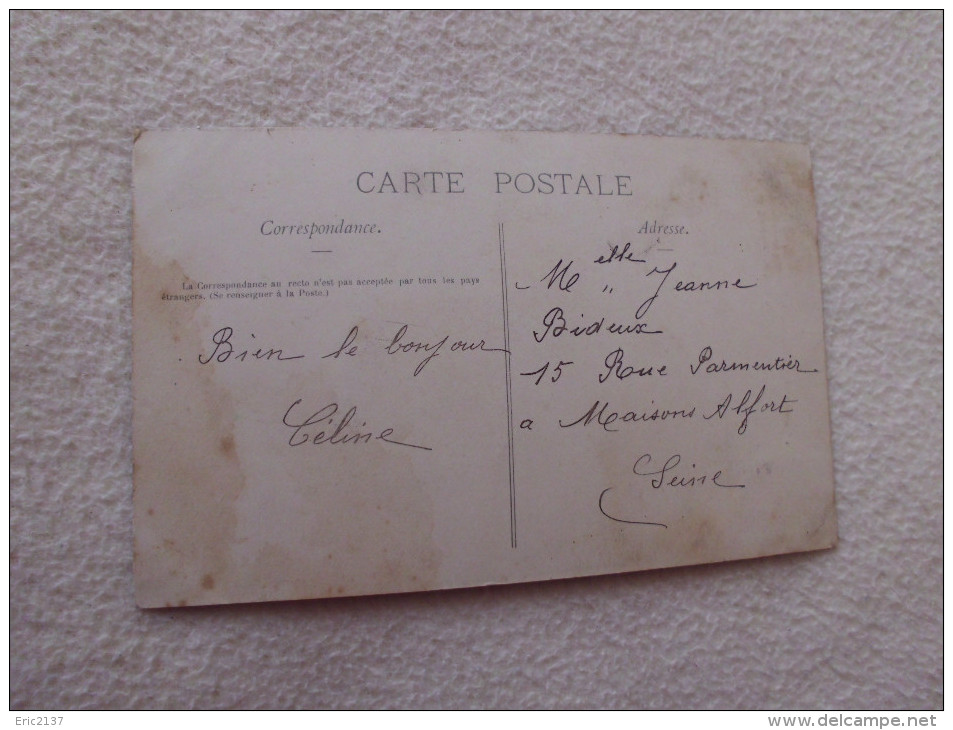 CARTE POSTALE
Correspondance.
La Correspondance au recto n'est pas acceptée par tous les pays
étrangers. (Se renseigner à la Poste.)
Bien le bonjour
Céline
Adresse.
Melle Jeanne
Bideux
15 Rue Parmentier
a Maisons Alfort
Seine
Eric2137
www.delcampe.net